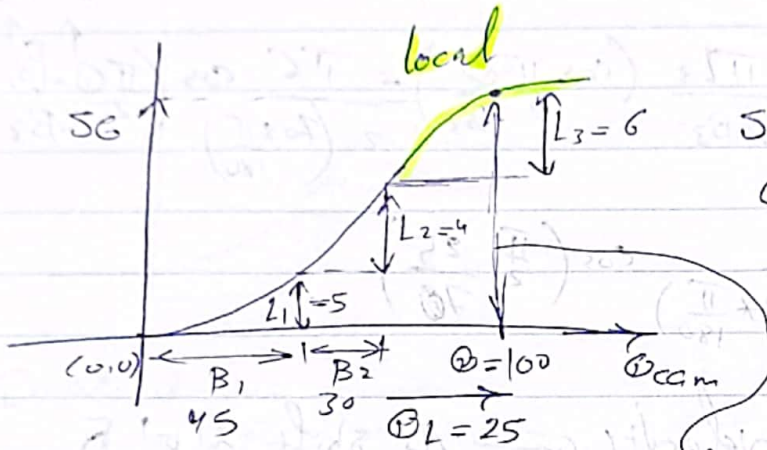 local
SG
L₃ = 6
S
L₂ = 4
L₁ = 5
(0,0)
B₁
B₂
Θ = 100
Θcam
45
30
ΘL = 25